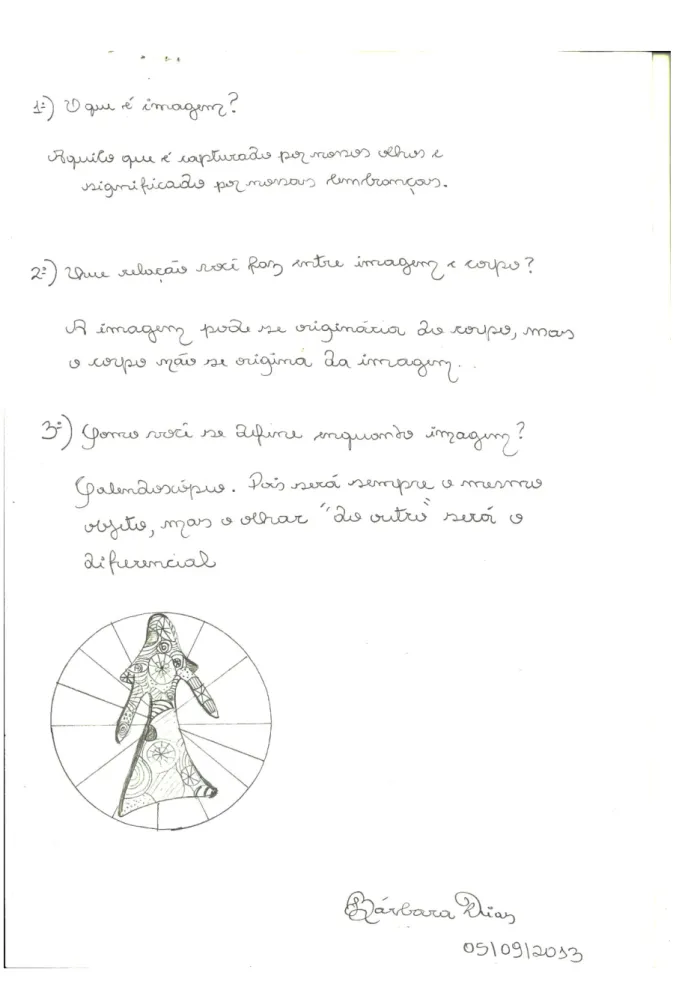 1º) O que é imagem?
Aquilo que é capturado por nossos olhos e
significado por nossas lembranças.
2º) Que relação você faz entre imagem e corpo?
A imagem pode se originária do corpo, mas
o corpo não se origina da imagem.
3º) Como você se define enquanto imagem?
Calendoscópio. Pois será sempre o mesmo
objeto, mas o olhar "do outro" será o
diferencial
Bárbara Dias
05/09/2013